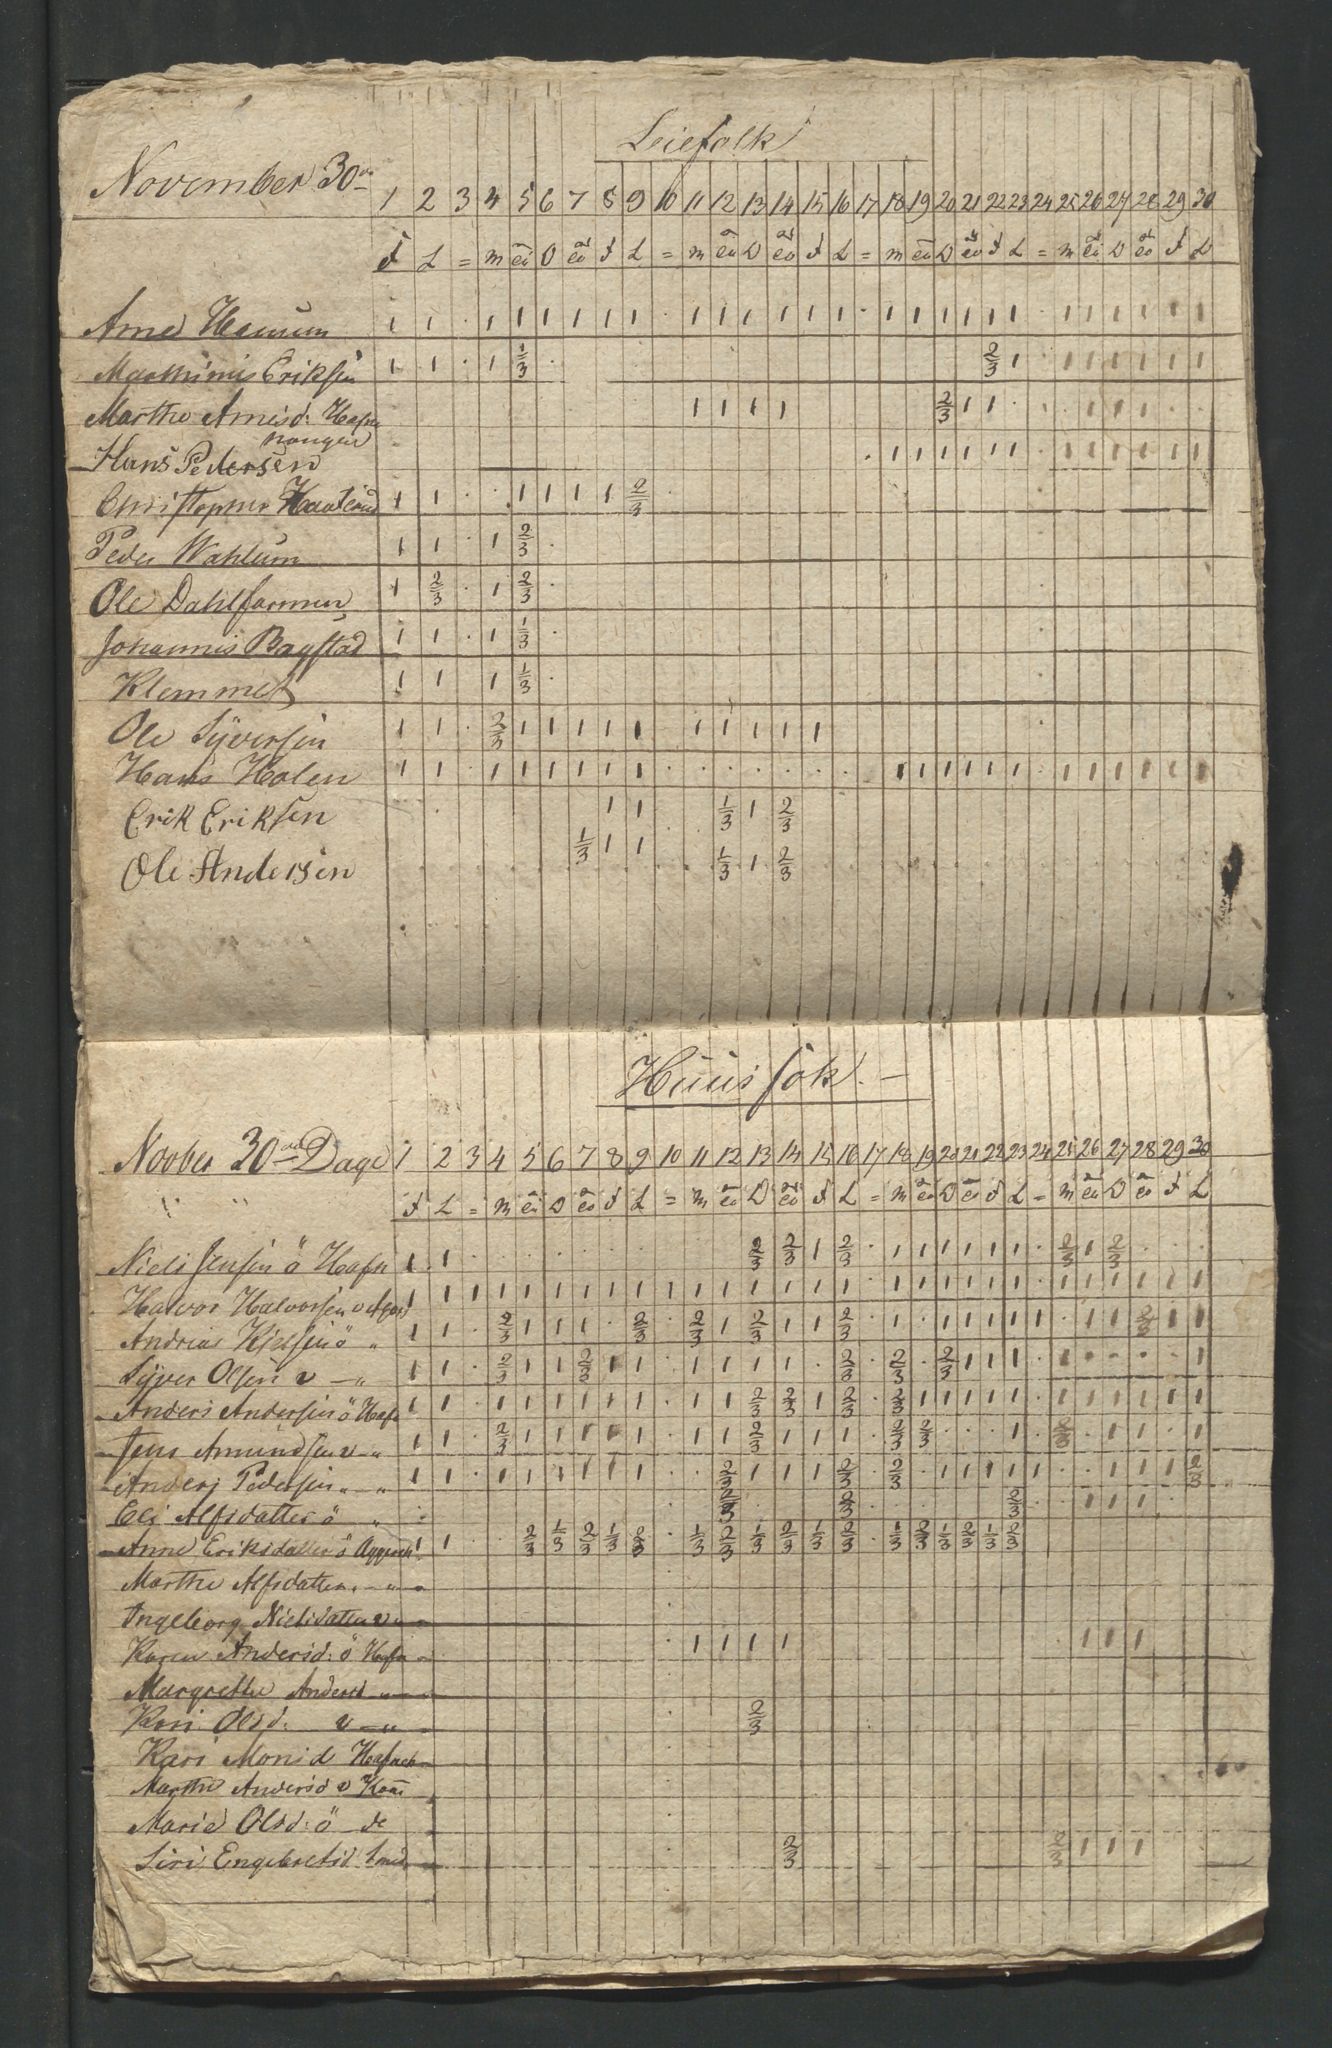 Leiefolk
November 30 1 2 3 4 5 6 7 8 9 10 11 12 13 14 15 16 17 18 19 20 21 22 23 24 25 26 27 28 29 30
Arne Hamum 1 1 · 1 1 1 1 1 1 · 1 1 1 1 1 1 · 1 1 1 1 1 1 · 1 1 1 1 1 1
Mathinis Eriksen 1 1 · 1 1/3 · 2/3 1 · 1 1 1 1 1 1
Marthe Arnisd: 1 1 1 1 2/3 1 1 · 1 1 1
Hans Pedersen · 1 1 1 1 1 1 · 1 1 1 1 1 1
Christopher 1 1 · · 1 1 1 1 2/3 ·
Peder Wahlum 1 1 · 1 2/3 ·
Ole Dahlsarmen 1 2/3 · 1 2/3 ·
Johannis Bagstad 1 1 · 1 1/3 ·
Klemmet 1 1 1 1/3 ·
Ole Syversen 1 1 · 2/3 1 1 1 1 1 · 1 1 1 1 1
Hans Holen 1 1 · 1 1 1 1 1 1 · · · · · · · 1 1 1 1 1 1 · 1 1 1 1 1 1
Erik Eriksen 1 1 1/3 1 2/3
Ole Andersen 1/3 1 1 1/3 1 2/3
Huusfok. —
Novber 30 Dage 1 2 3 4 5 6 7 8 9 10 11 12 13 14 15 16 17 18 19 20 21 22 23 24 25 26 27 28 29 30
Niels Jensen ö Hafn 1 1 · · · · · · · 2/3 2/3 1 2/3 · 1 1 1 1 1 1 · 2/3 1 2/3 · · ·
Halvor Halvorsen v 1 1 1 1 1 1 1 1 1 1 1 1 1 1 1 1 · 1 1 1 1 1 1 · 1 1 1 1 1 1
Andreas Kjelsen ö " 1 1 · 2/3 1 1 1 · 2/3 · 2/3 1 2/3 1 1 2/3 · 1 1 1 1 1 1 · 1 1 1 2/3 1 1
Syver Olsen v — " 1 1 · 2/3 1 1 2/3 1 1 · 1 1 1 1 · 2/3 · 2/3 · 2/3 1 1 1 · 1 · · · · 1
Anders Andersen ö Hafn 1 1 · 1 1 1 1 1 1 · 1 1 2/3 2/3 1 2/3 · 2/3 1 1 1 1 1 · 1 1 1 1 1 1
Jens Amundsen v — " 1 1 · 2/3 1 1 1 1 1 · 1 1 2/3 1 1 1 · 2/3 2/3 · · · 1 · 2/3 · 1 1 · 1
Anders Pedersen " — " 1 1 · 1 1 1 1 1 1 · · 2/3 1 1 1 2/3 · 2/3 · 1 1 1 1 1 · · 1 1 1 2/3
Eli Alfsdatter ö " 2/3 · 2/3 · 2/3 1 1 1 ·
Anne Eriksdatter ö 1 1 · · 2/3 1/3 2/3 1/3 2/3 · 1/3 2/3 1/3 2/3 1/3 2/3 · 1/3 2/3 1/3 2/3 1/3 2/3
Marthe Alfsdatter " — "
Ingeborg Nielsdatter v "
Karen Andersd: ö Hafn 1 1 1 1 1 1 1
Margrethe Andersd " — "
Kari Olsd: v — " 2/3
Kari Monsd
Marthe Andersd v
Marie Olsd: ö de
Siri Engebretsd 2/3 2/3 1 1 1